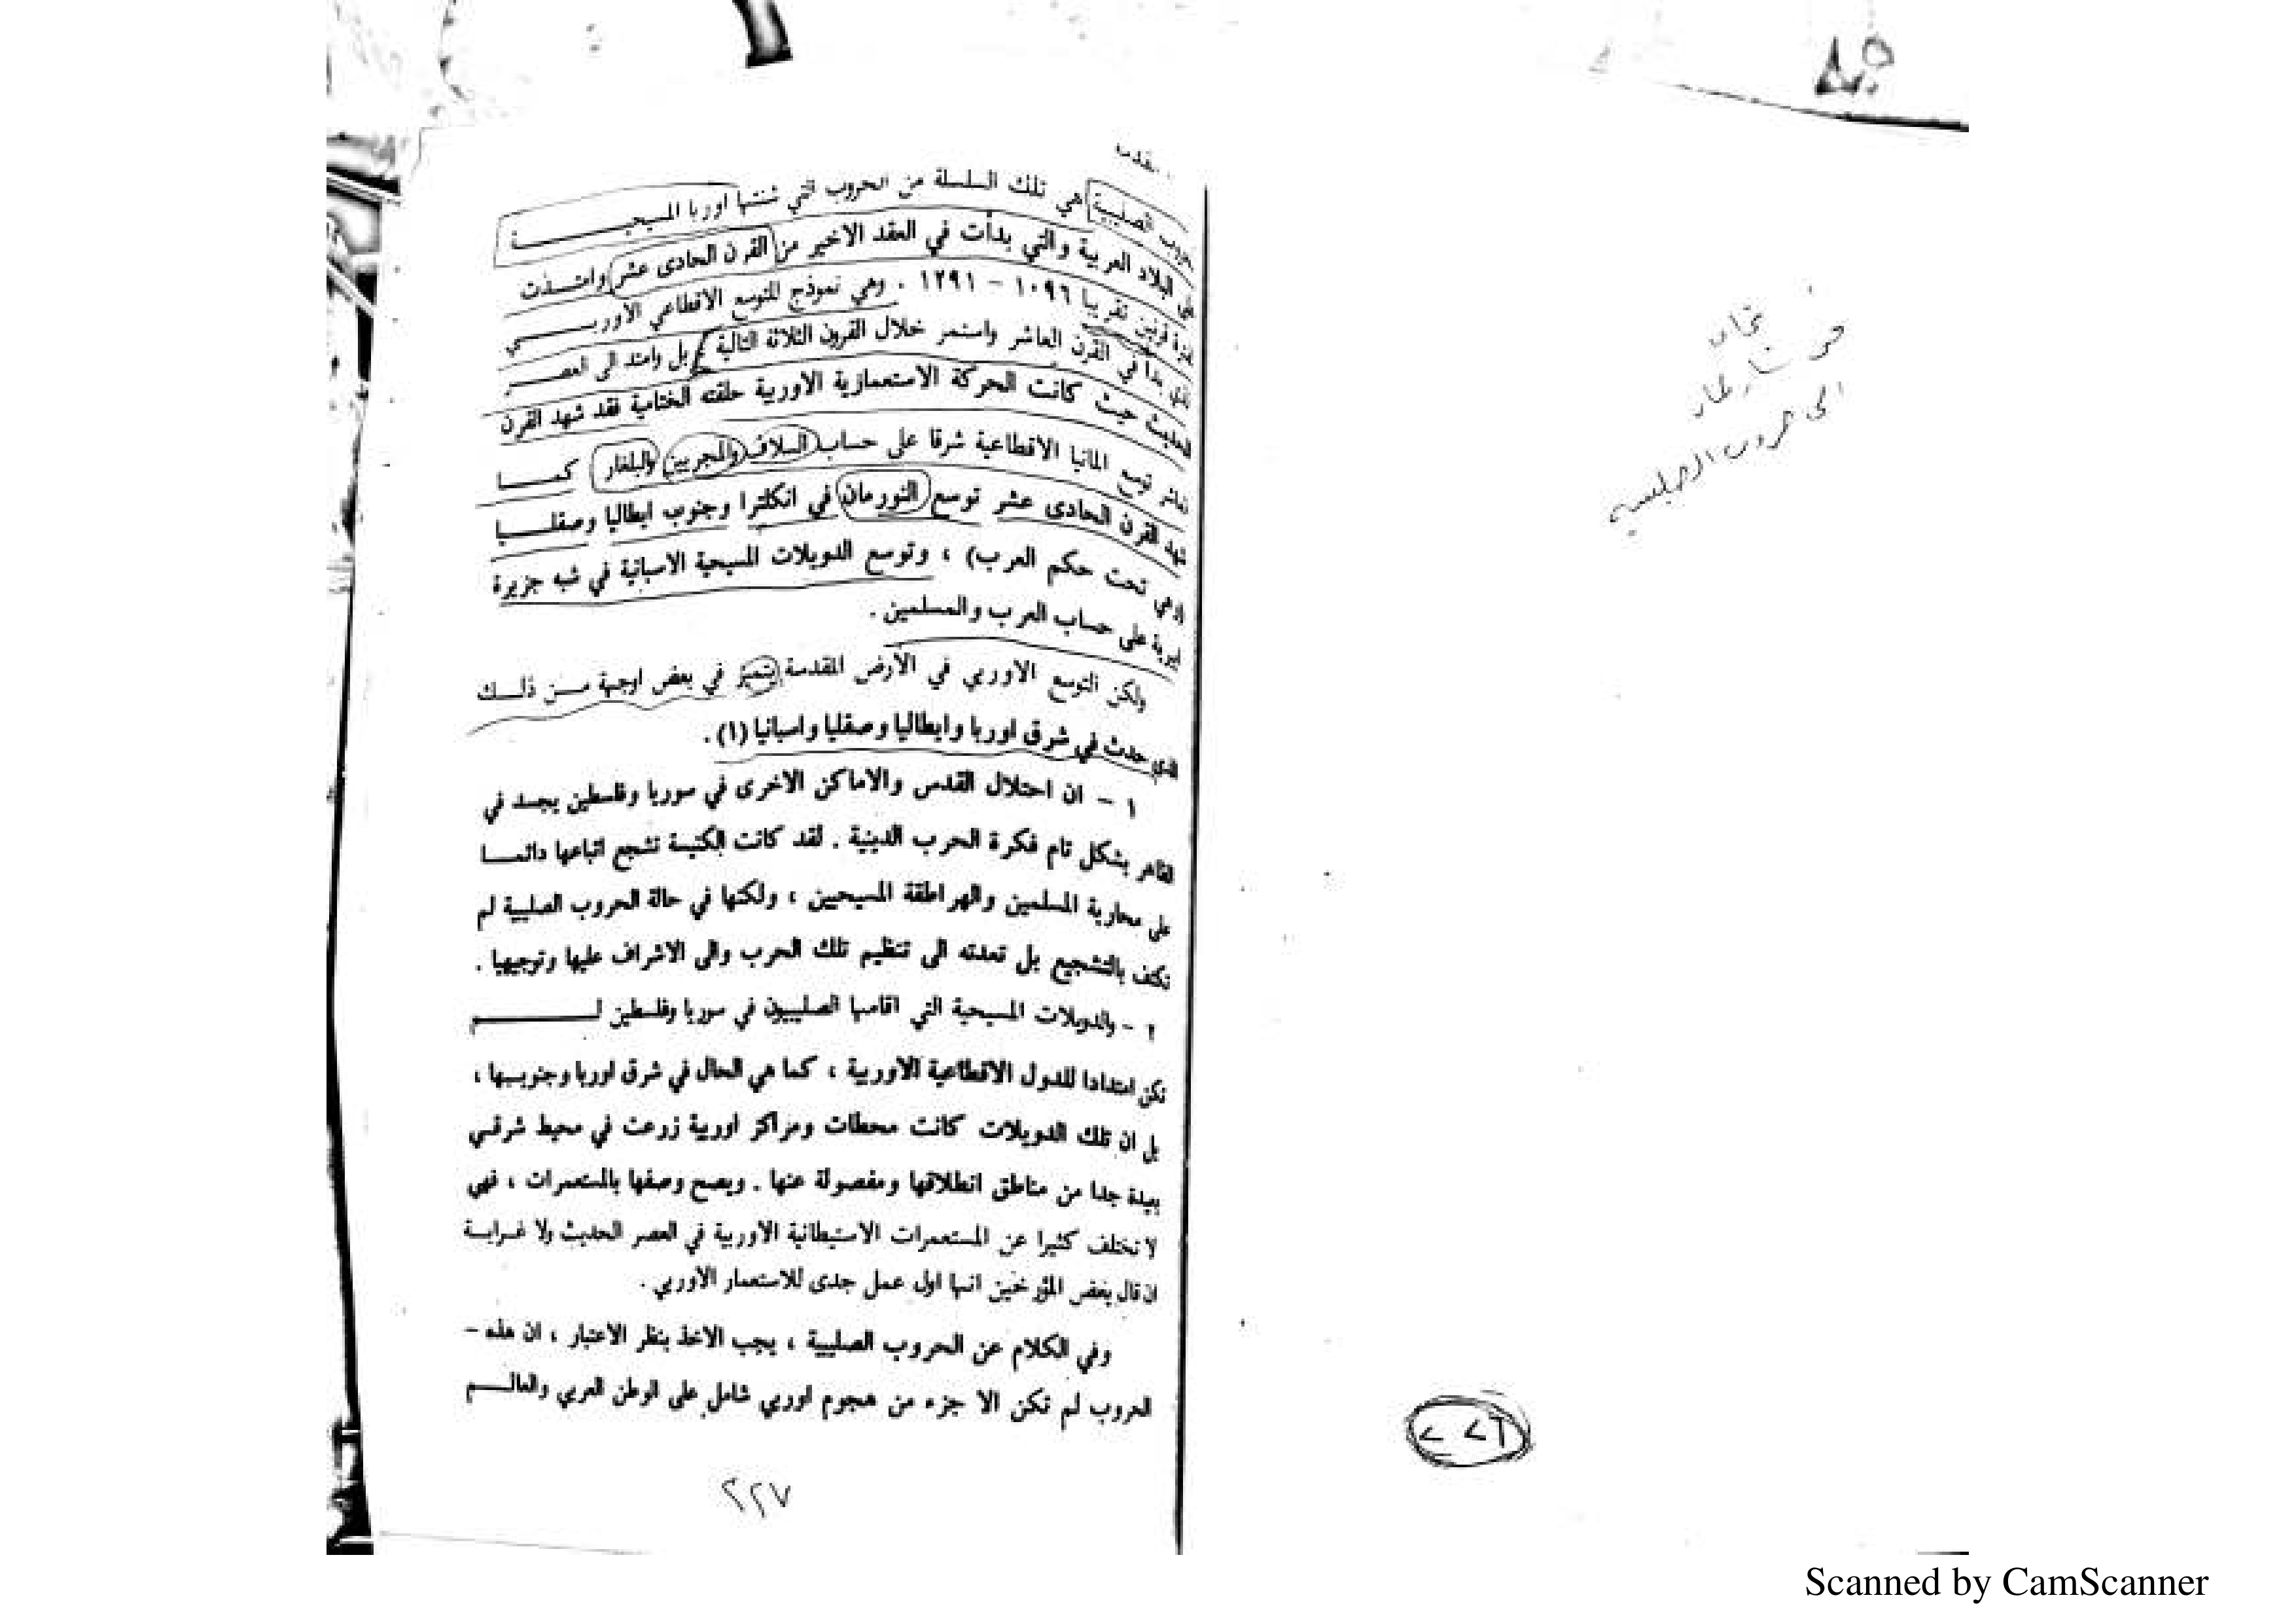 الصليبية هي تلك السلسلة من الحروب التي شنتها اوربا المسيحيـــــة
على البلاد العربية والتي بدأت في العقد الاخير من القرن الحادى عشر وامتـــذت
لفترة قرنين تقريبا ١٠٩٦ – ١٢٩١ . وهي نموذج للتوسع الاقطاعي الاوربـــــي
الذي بدا في القرن العاشر واستمر خلال القرون الثلاثة التالية بل وامتد الى العصـــر
الحديث حيث كانت الحركة الاستعمارية الاوربية حلقته الختامية فقد شهد القرن
العاشر توسع المانيا الاقطاعية شرقا على حساب السلاف والمجريين والبلغار كمـــا
شهد القرن الحادى عشر توسع النورمان في انكلترا وجنوب ايطاليا وصقلــــيا
(وهي تحت حكم العرب) ، وتوسع الدويلات المسيحية الاسبانية في شبه جزيرة
ايبرية على حساب العرب والمسلمين .
ولكن التوسع الاوربي في الأرض المقدسة يتميز في بعض اوجهة مــن ذلــك
الذي حدث في شرق اوربا وايطاليا وصقليا واسبانيا (١) .
١ – ان احتلال القدس والاماكن الاخرى في سوريا وفلسطين يجسد في
الظاهر بشكل تام فكرة الحرب الدينية . لقد كانت الكنيسة تشجع اتباعها دائمــا
على محاربة المسلمين والهراطقة المسيحيين ، ولكنها في حالة الحروب الصليبية لم
تكتف بالتشجيع بل تعدته الى تنظيم تلك الحرب والى الاشراف عليها وتوجيهها .
٢ – والدويلات المسيحية التي اقامها الصليبيون في سوريا وفلسطين لـــــــم
تكن امتدادا للدول الاقطاعية الاوربية ، كما هي الحال في شرق اوربا وجنوبــها ،
بل ان تلك الدويلات كانت محطات ومراكز اوربية زرعت في محيط شرقــي
بعيدة جدا من مناطق انطلاقها ومفصولة عنها . ويصح وصفها بالمستعمرات ، فهي
لا تختلف كثيرا عن المستعمرات الاستيطانية الاوربية في العصر الحديث ولا غــرابــة
ان قال بعض المؤرخين انها اول عمل جدى للاستعمار الاوربي .
وفي الكلام عن الحروب الصليبية ، يجب الاخذ بنظر الاعتبار ، ان هذه –
الحروب لم تكن الا جزء من هجوم اوربي شامل على الوطن العربي والعالــــم
٢٢٧
الحروب الصليبيه
٢٢٦
Scanned by CamScanner